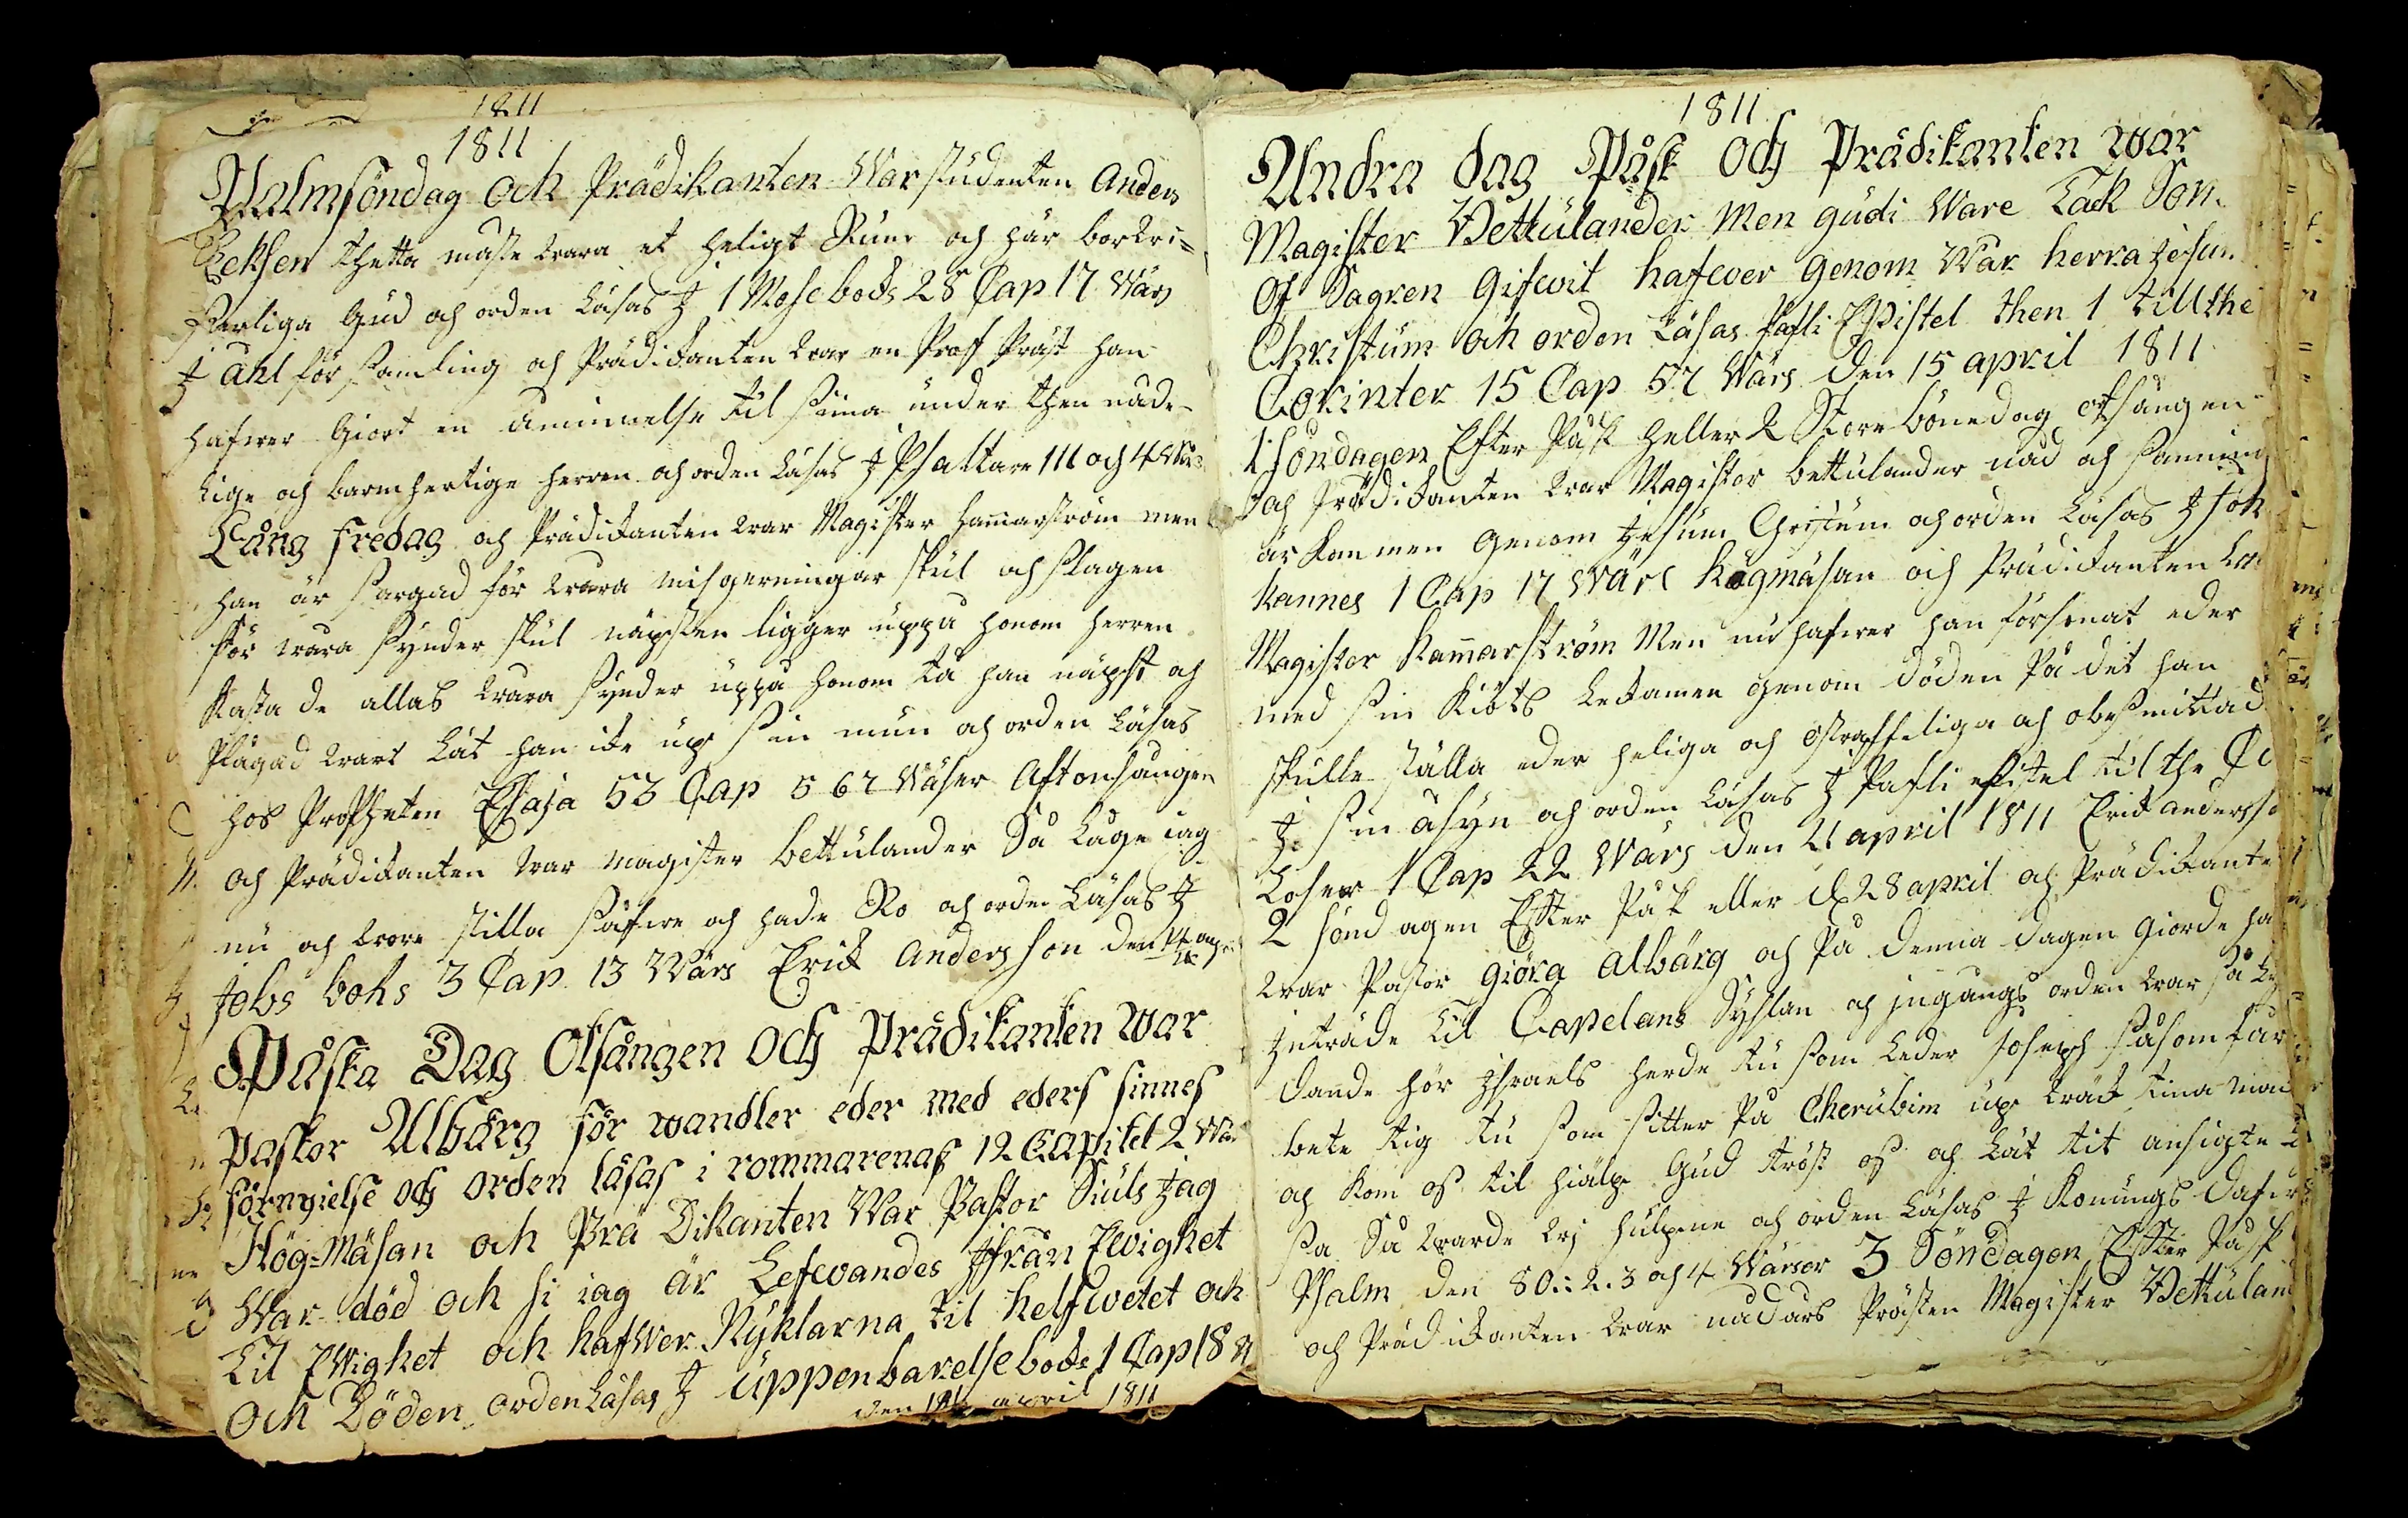 1811
1811
Palmsöndag och Prädikanten War studenten Anders
Eeksen thetta måste wara et heligt Rum och här bor
Gud och orden Läsas J 1 Mose boks 28 Cap 17 Wärs
J ahl församling och Prädikanten war en Prof Präst han
hafwer Giort en åminnelse til sina under then nåde-
lige och barmhertige herren och orden Läsas J Psaltare 111 och 4 Wärs
Lång fredag och Prädikanten war Magister Hammarström men
han är sargad för wåra misgerningar skul och slagen
för wåra synder skul näpsten ligger uppå honom herren
kastade allas wåra synder uppå honom tå han näpst och
Plågad wart Lät han icke up sin mun och orden Läsas
hos Propheten Esaja 53 Cap 5 6 7 Wäser Aftonsången
och Prädikanten war magister bettulander Så Låge iag
nu och wore stilla såfwe och hade Ro och orden Läsas J
Jobs boks 3 Cap 13 Wärs Erik Andersson den
Påska Dag Otsången och Prädikanten war
Pastor Albärg för wandler eder med eders sinnes
förnyielse och orden läsas i rommarenas 12 Capitel 2 Wär
Hög=Mäsan och Prä Dikanten War Pastor Siuls Jag
War död och si iag är Lefwandes Jfrån Ewighet
Til Ewighet och hafwer Nyklarna til helfwetet och
och Döden orden Läsas J Uppenbarelse boks 1 Cap 18 W
den 14 april 1811
1811
Andra dag Påsk och Prädikanten war
Magister Bettulander Men gudi Ware Tack Som
Os Sagren Gifwit hafwer Genom War herra Jesum
Christum och orden Läsas Pafli Epistel then 1 till the
Corinter 15 Cap 57 Wärs den 15 april 1811
1 söndagen Efter Påsk heller 2 Store bönedag otsången
och Prädikanten war Magister bettulander nåd och sanning
är kommen Genom Jesum Christum och orden Läsas J Joh
hannes 1 Cap 17 Wärs högmäsan och Prädikanten war
Magister Hammarström Men nu hafwer han försonat eder
med sin Kiöts Lekamen genom döden På det han
skulle ställa eder heliga och ostraffeliga och obesmittad
J sin åsyn och orden Läsas J Pafli epistel til the Co
Loser 1 Cap 22 Wärs den 21 april 1811 Erik andersso
2 sönd agen Efter Påsk eller d 28 april och Prädikante
war Pastor Giöra albärg och På denna dagen Giorde ha
Jnträde til Capelans Syslan och ingångs orden war så
dande hör Jsraels herde tu som Leder Joseph såsom får
bete tig tu som sitter På Cherubim up wäck tina mac
och kom os til hiälp Gud tröst os och Lät tit ansigte
Så warde wj hulpne och orden Läsas J Konungs Dafids
Psalm den 80: 2. 3 och 4 Wärser 3 Söndagen Efter Påsk
och Prädikanten war nådårs Prästen Magister Bettulan